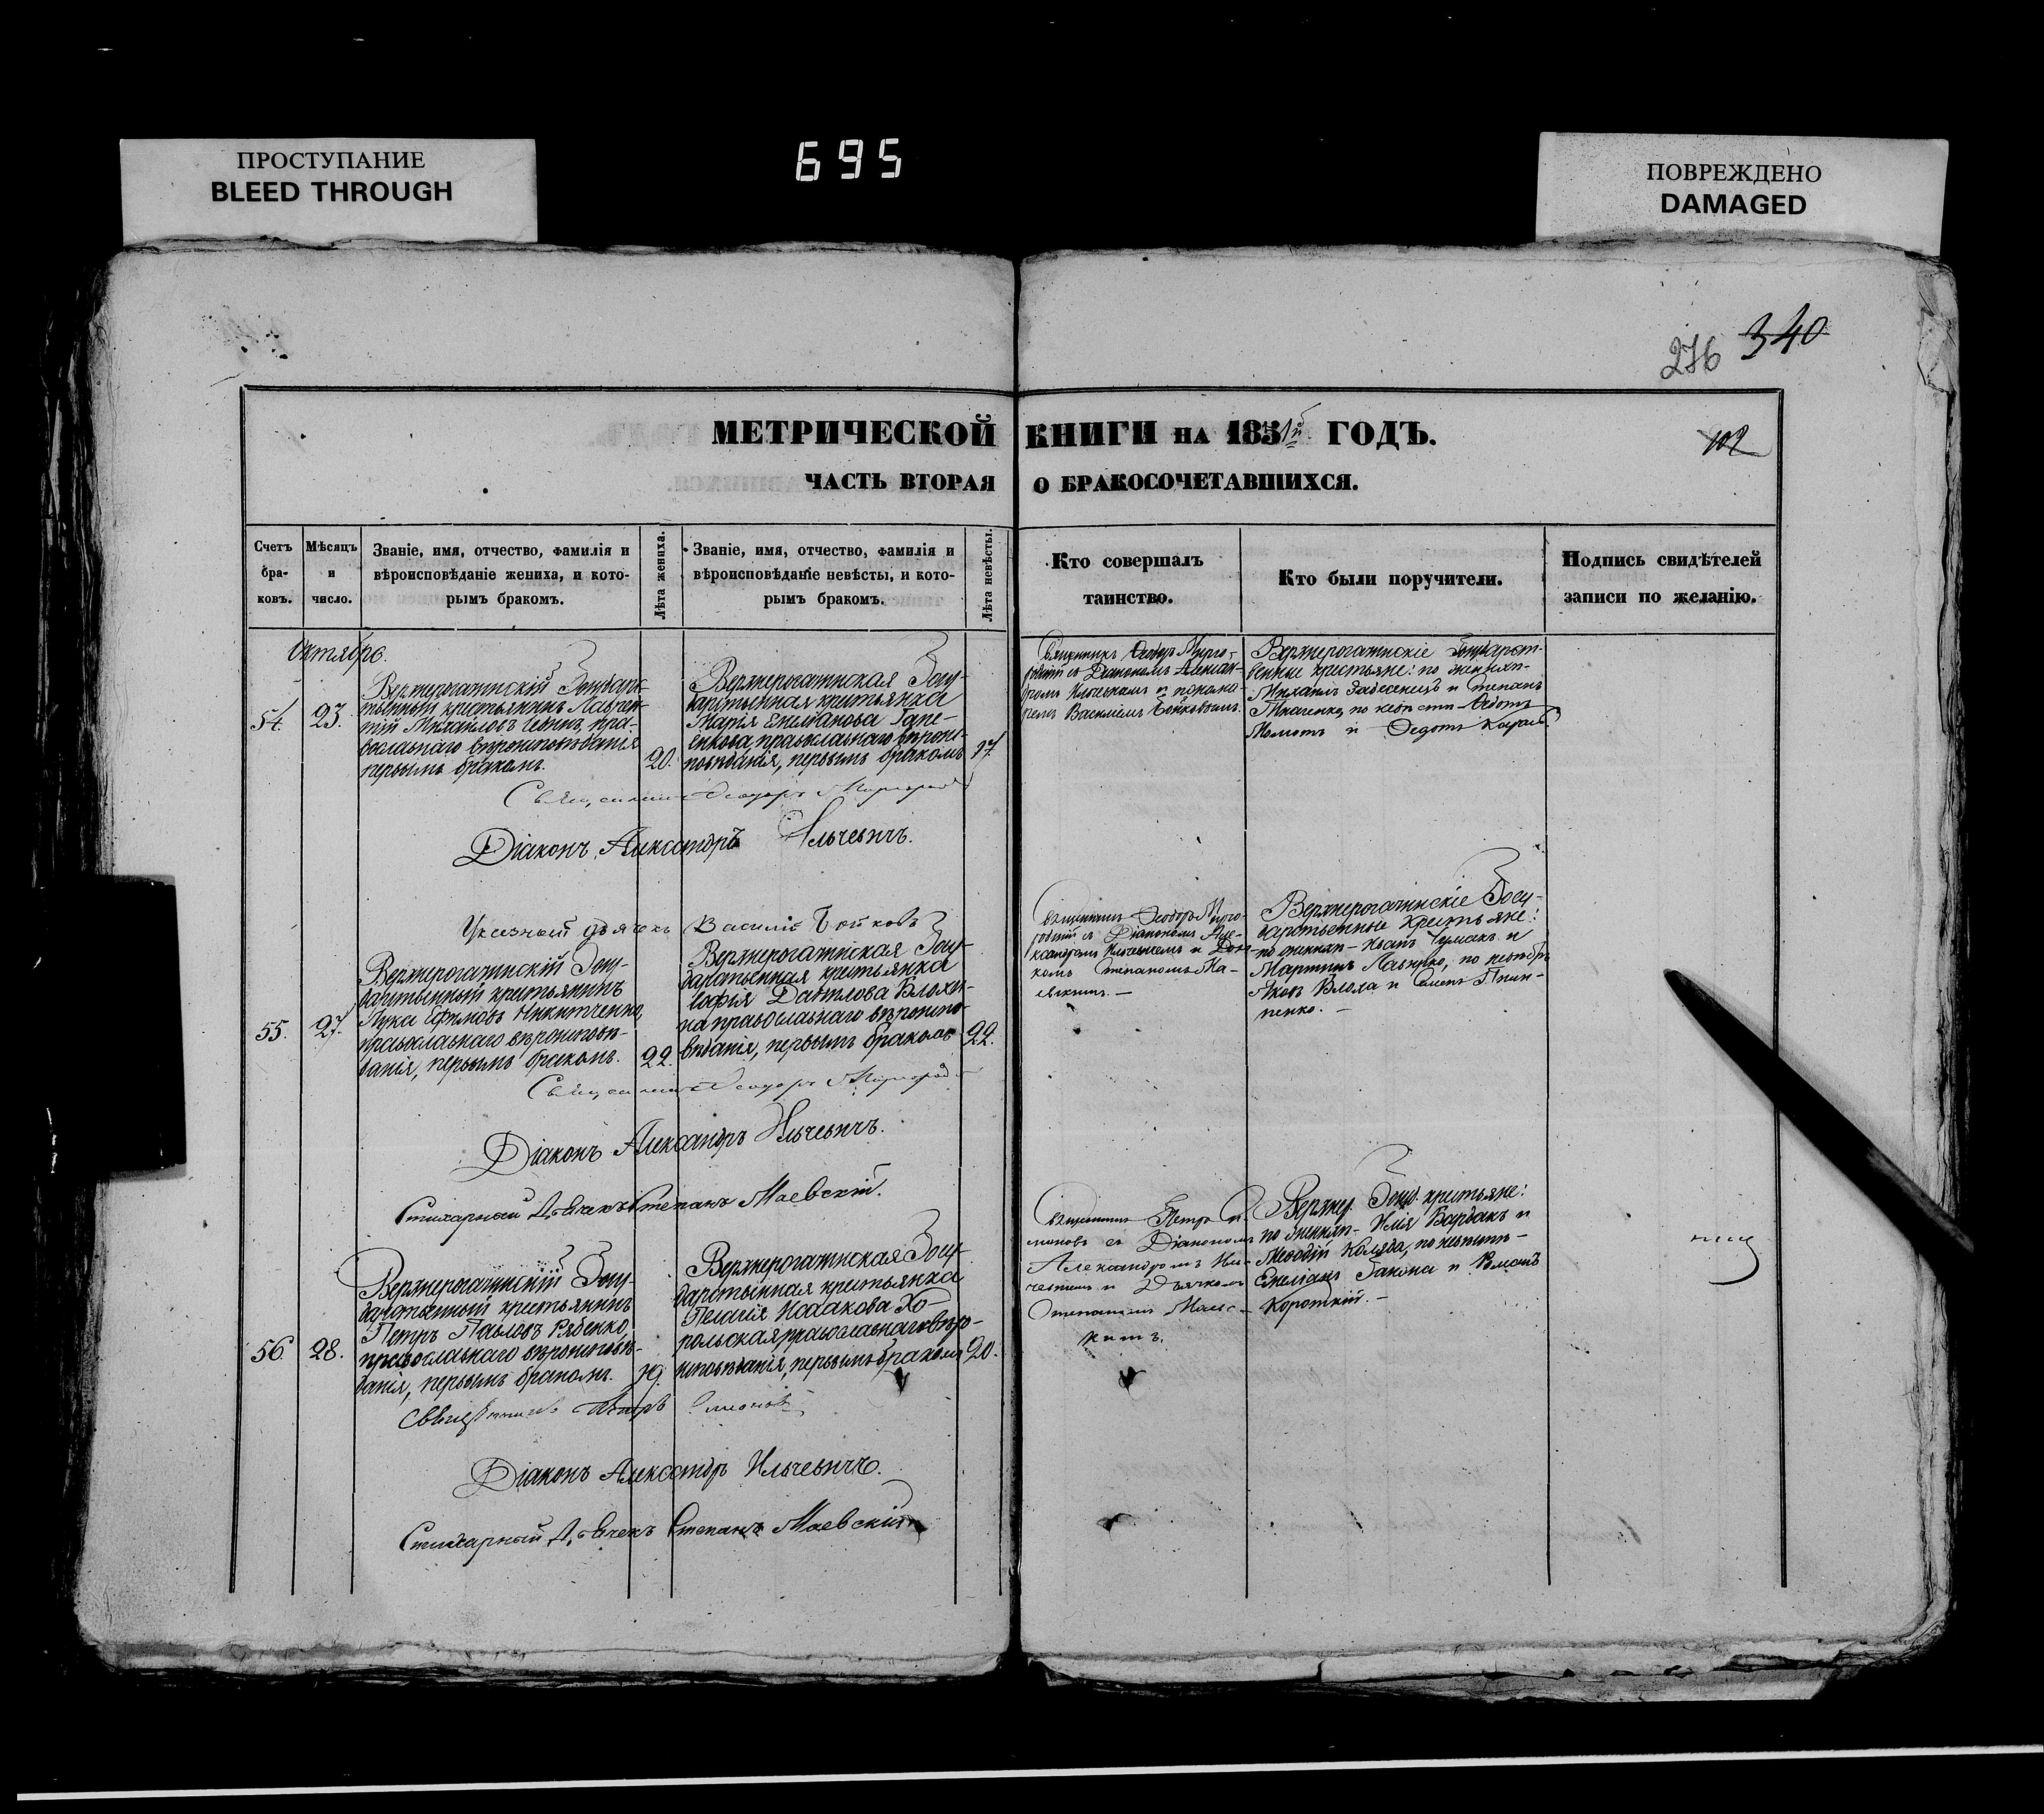 ПРОСТУПАНИЕ
BLEED THROUGH
695
ПОВРЕЖДЕНО
DAMAGED
276 340
МЕТРИЧЕСКОЙ КНИГИ НА 1851й ГОДЪ.
102
ЧАСТЬ ВТОРАЯ О БРАКОСОЧЕТАВШИХСЯ.
Счетъ
бра-
ковъ.
Мѣсяцъ
и
число.
Званіе, имя, отчество, фамилія и
вѣроисповѣданіе жениха, и кото-
рымъ бракомъ.
Лѣта жениха.
Званіе, имя, отчество, фамилія и
вѣроисповѣданіе невѣсты, и кото-
рымъ бракомъ.
Лѣта невѣсты.
Кто совершалъ
таинство.
Кто были поручители.
Подпись свидѣтелей
записи по желанію.
Октябрь.
54. 23.
Верхнерогачинскій Государс-
твенный крестьянинъ Лаврен-
тій Михайловъ пра-
вославнаго вѣроисповѣданія
первымъ бракомъ.
20.
Верхнерогачинская Госу-
дарственная крестьянка
Марія Емельянова Гапе-
енкова, православнаго вѣроис-
повѣданія, первымъ бракомъ
17
Священникъ Ѳеодоръ Мирго-
родскій съ Діакономъ Алексан-
дромъ Ильчевичемъ и понома-
ремъ Василіемъ Бойковымъ.
Верхнерогачинскіе Государст-
венные крестьяне: по женихѣ-
Михаилъ и Степанъ
Ткаченко, по невѣстѣ
и Федотъ
Священникъ Ѳеодоръ Миргород
Діаконъ Александръ Ильчевичъ.
Указный дьячекъ Василій Бойковъ
55. 27.
Верхнерогачинскій Госу-
дарственный крестьянинъ
Лука Ефимовъ Никитченко,
православнаго вѣроисповѣ-
данія, первымъ бракомъ.
22.
Верхнерогачинская Госу-
дарственная крестьянка
Софія Данилова Блохи-
на православнаго вѣроиспо-
вѣданія, первымъ бракомъ
22.
Священникъ Ѳеодоръ Мирго-
родскій съ Діакономъ Але-
ксандромъ Ильчевичемъ и Дьяч-
комъ Степаномъ Ма-
евскимъ. —
Верхнерогачинскіе Госу-
дарственные крестьяне:
по женихѣ - Иванъ Чумакъ и
Мартинъ по невѣстѣ
Яковъ Блоха и Семенъ Пили-
пенко. —
Священникъ Ѳеодоръ Миргород
Діаконъ Александръ Ильчевичъ.
Стихарный Дьячекъ Степанъ Маевскій.
56. 28.
Верхнерогачинскій Госу-
дарственный крестьянинъ
Петръ Павловъ Рябенко,
православнаго вѣроисповѣ-
данія, первымъ бракомъ.
19.
Верхнерогачинская Госу-
дарственная крестьянка
Пелагія Исаакова Хо-
польская православнаго вѣро-
исповѣданія, первымъ бракомъ
20.
Священникъ Петръ Си-
моновъ съ Діакономъ
Александромъ Иль-
чевичемъ и Дьячкомъ
Степаномъ Маевс-
кимъ.
Верхнер. Госуд. крестьяне:
по женихѣ - Илія Бардакъ и
Меѳодій Коляда, по невѣстѣ -
Емеліанъ Гакона и Романъ
Короткій. —
Священникъ Петръ Симоновъ
Діаконъ Александръ Ильчевичъ.
Стихарный Дьячекъ Степанъ Маевскій